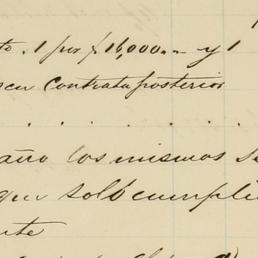 te. 1 por $16,000.. y 1
en contrata posterior
. . . . . . . .
año los mismos Se
que solo cumpli
nte